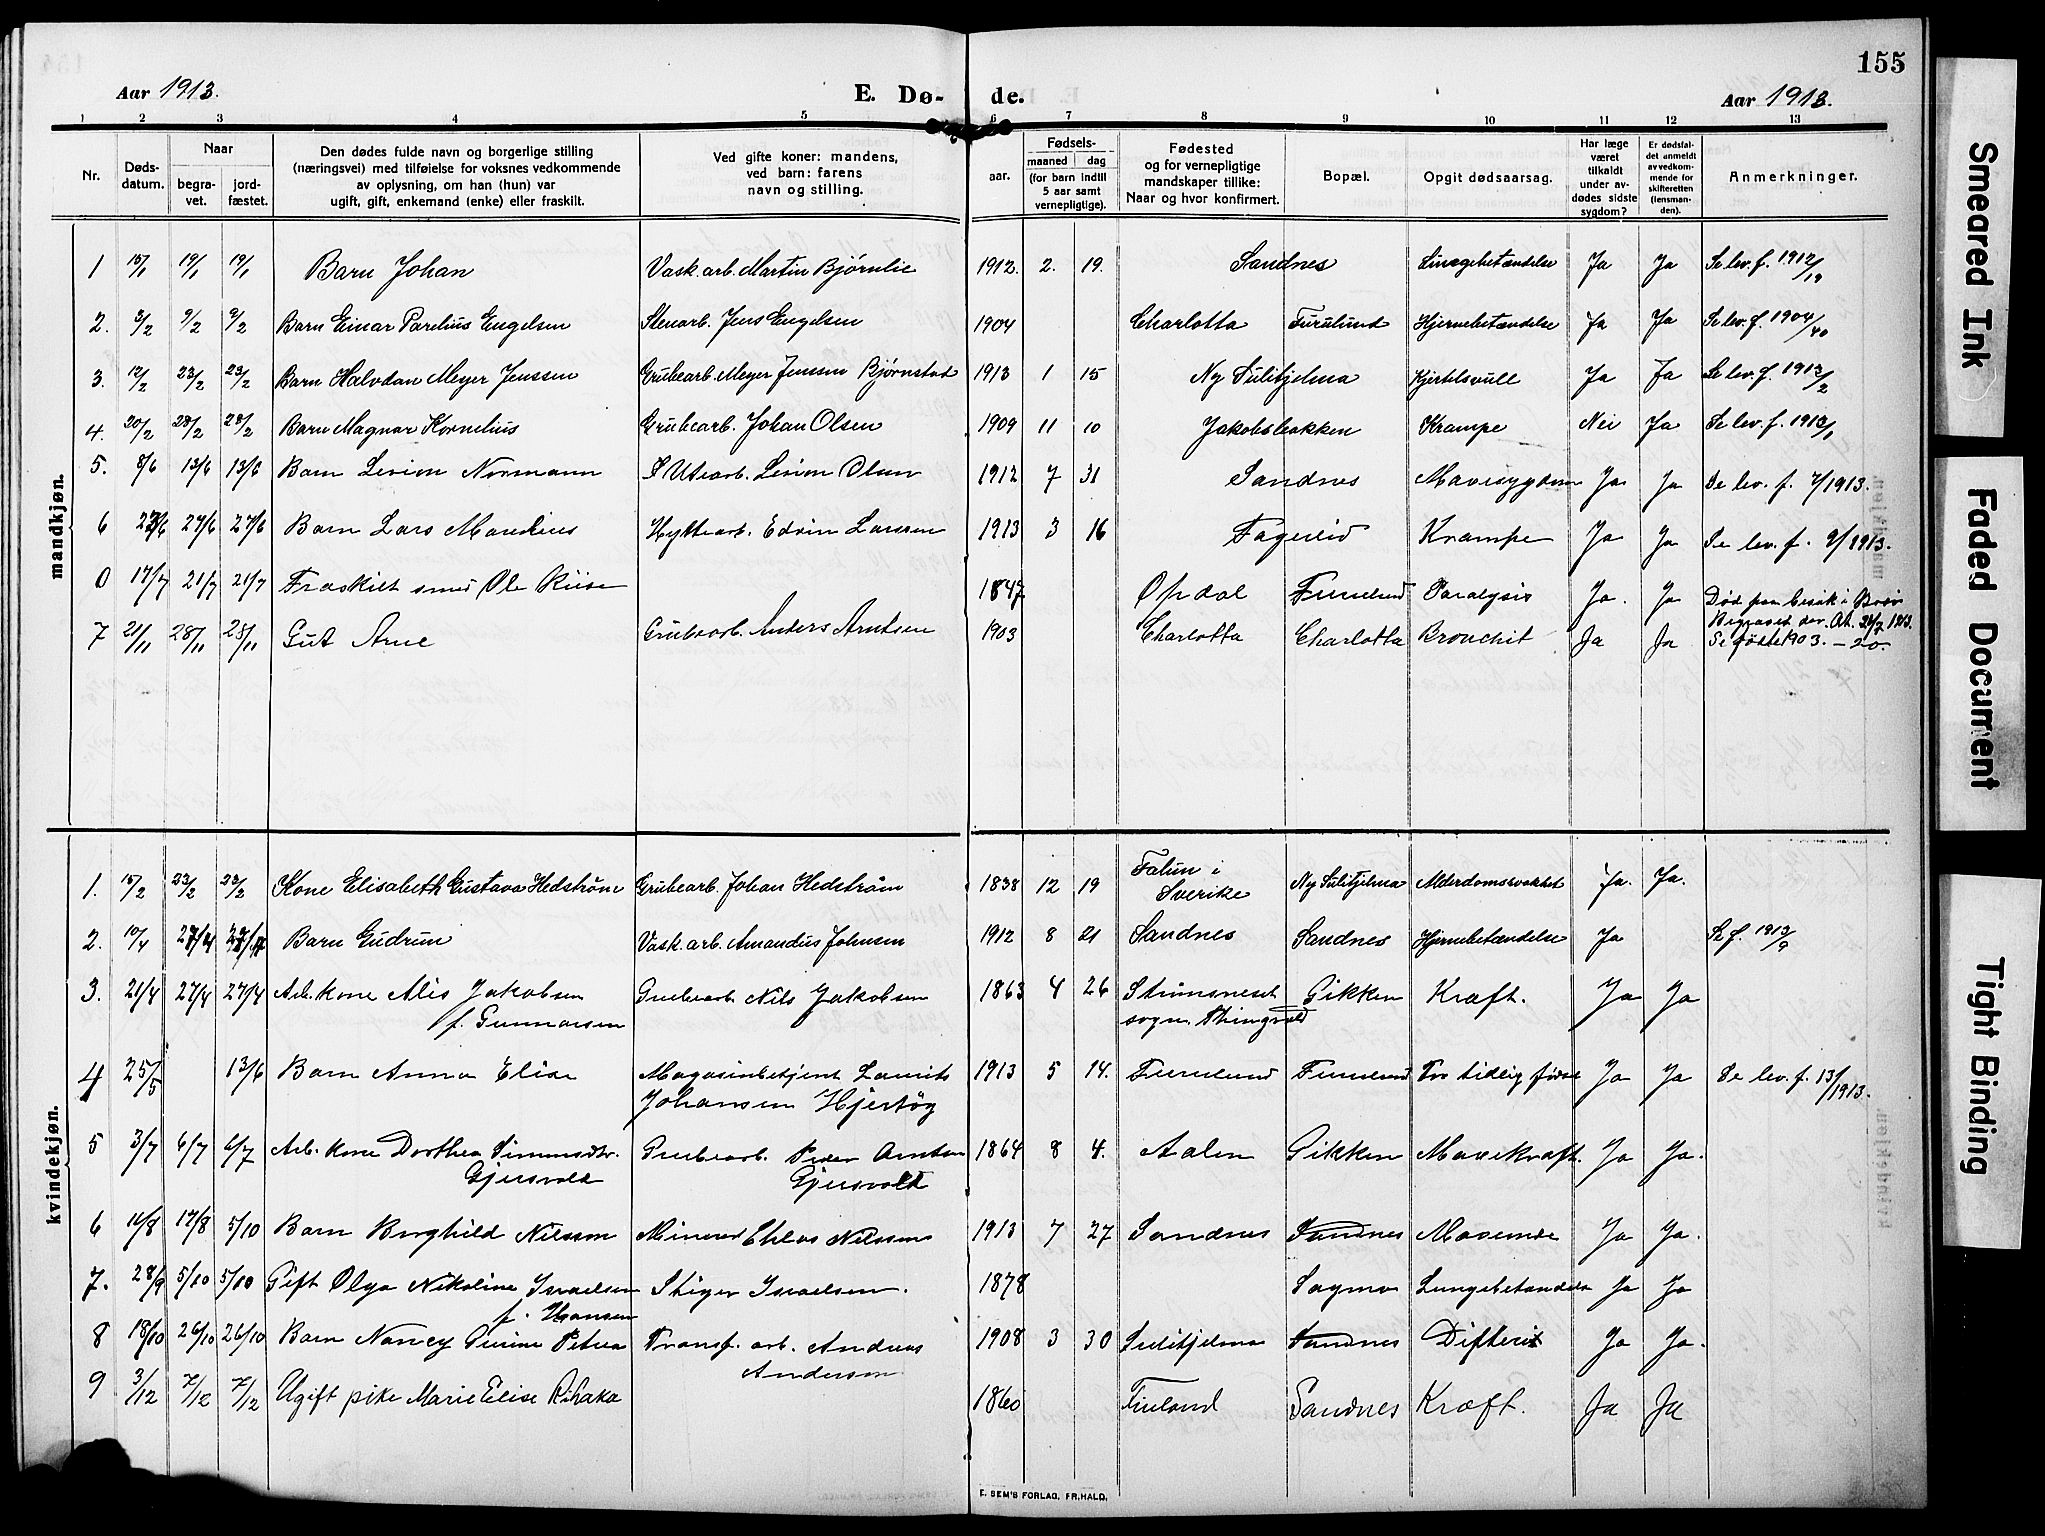 155
Aar 1913. E. Dø- de. Aar 1913.
1 2 3 4 5 6 7 8 9 10 11 12 13
Nr. Døds-datum. Naar begra-vet. jord-fæstet. Den dødes fulde navn og borgerlige stilling (næringsvei) med tilføielse for voksnes vedkommende av oplysning, om han (hun) var ugift, gift, enkemand (enke) eller fraskilt. Ved gifte koner: mandens, ved barn: farens navn og stilling. Fødsels- aar. maaned dag (for barn indtil 5 aar samt vernepligtige). Fødested og for vernepligtige mandskaper tillike: Naar og hvor konfirmert. Bopæl. Opgit dødsaarsag. Har læge været tilkaldt under av-dødes sidste sygdom? Er dødsfal-det anmeldt av vedkom-mende for skifteretten (lensman-den). Anmerkninger.
mandkjøn.
1 15/1 19/1 19/1 Barn Johan Vask.arb. Martin Bjørnlie 1912. 2. 19. Sandnes Lungebetændelse Ja Ja Se lev. f. 1912/19
2. 3/2 9/2 9/2 Barn Einar Parelius Engelsen Stenarb. Jens Engelsen 1904 Charlotta Furulund Hjernebetændelse Ja Ja Se lev. f. 1904/40
3. 12/2 23/2 23/2 Barn Halvdan Meyer Jenssen Grubearb. Meyer Jenssen Bjørnstad 1913 1 15 Ny Sulitjelma Kjertelsvull Ja Ja Se lev. f. 1913/2
4. 20/2 28/2 28/2 Barn Magnar Kornelius Grubearb. Johan Olsen 1909 11 10 Jakobsbakken Krampe Nei Ja Se lev. f. 1913/1
5. 8/6 13/6 13/6 Barn Normann Olsen 1912 7 31 Sandnes Mavesygdom Ja Ja Se lev. f. 7/1913.
6 27/6 27/6 Barn Lars Mandius Hyttearb. Edvin Larssen 1913 3 16 Fagerlid Krampe Ja Ja Se lev. f. 9/1913.
0 17/7 21/7 21/7 Fraskilt smed Ole Riise 1847 Opdal Furulund Paralysis Ja. Ja Død paa besøk i Bodø Begravet der.
7 21/11 28/11 28/11 Gut Arne Grubearb. Anders Arntsen 1903 Charlotta Charlotta Bronchit Ja Ja Se fødte 1903. – 20.
kvindekjøn.
1. 15/2 23/2 23/2 Kone Elisabeth Gustava Hedstrøm Grubearb. Johan Hedstrøm 1838 12 19 Falun i Sverike Ny Sulitjelma Alderdomssvakhet Ja. Ja.
2. 10/4 Barn Gudrun Vask.arb. Amandus Johnsen 1912 8 21 Sandnes Sandnes Hjernebetændelse Ja Se f. 1912/9
3. 21/4 27/4 27/4 Arb. kone Alis Jakobsen Grubearb Nils Jakobsen 1863 4 26 Strømsneset Gikken Kræft. Ja Ja
f. Gunnarsen sogn. Thingvold
4 25/5 13/6 Barn Anna Elise Magasinbetjent Laurits 1913 5 14. Furulund Furulund For tidlig fødsel Ja Ja Se lev. f. 13/1913.
Johansen Hjertøy
5 3/7 6/7 6/7 Arb. kone Dorthea Simonsdtr. Grubearb. Peder Anton 1864 8 4. Aalen Gikken Mavekræft. Ja Ja.
Gjersvold Gjersvold
6 11/8 17/8 5/10 Barn Borghild Nilsson Minerer Nilsson 1913 7 27 Sandnes Sandnes Maveonde Ja Ja.
7. 28/9 5/10 5/10 Gift Olga Nikoline Israelsen Stiger Israelsen. 1878 Sagmo Lungebetændelse Ja Ja
f. Hansen
8 18/10 26/10 26/10 Barn Nancy Petrea Transp. arb. Andreas 1908 3 30 Sulitjelma Sandnes Difterit Ja Ja.
Andersen
9 3/12 7/12 7/12 Ugift pike Marie Elise 1860 Finland Sandnes Kræft. Ja Ja
E. SEM'S FORLAG, FR.HALD.
Smeared Ink
Faded Document
Tight Binding